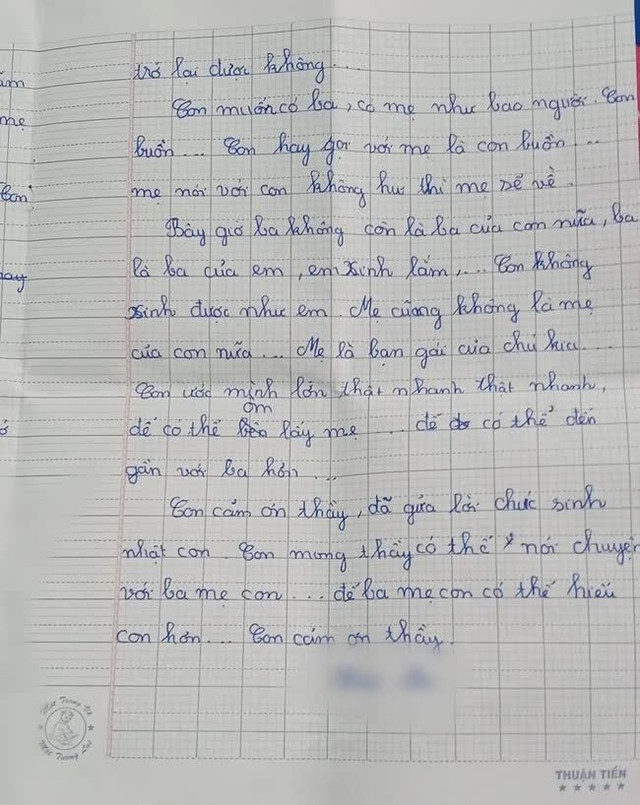 trở lại được không...
Con muốn có ba, có mẹ như bao người. Con
buồn... Con hay gọi với mẹ là con buồn...
mẹ nói với con không hư thì mẹ sẽ về.
Bây giờ ba không còn là ba của con nữa, ba
là ba của em, em xinh lắm,... Con không
xinh được như em. Mẹ cũng không là mẹ
của con nữa... Mẹ là bạn gái của chú kia...
Con ước mình lớn thật nhanh thật nhanh,
để có thể ôm lấy mẹ... để có thể đến
gần với ba hơn...
Con cảm ơn thầy, đã gửa lời chúc sinh
nhật con. Con mong thầy có thể nói chuyện
với ba mẹ con... để ba mẹ con có thể hiểu
con hơn... Con cảm ơn thầy.
mẹ
Con
THUẬN TIẾN